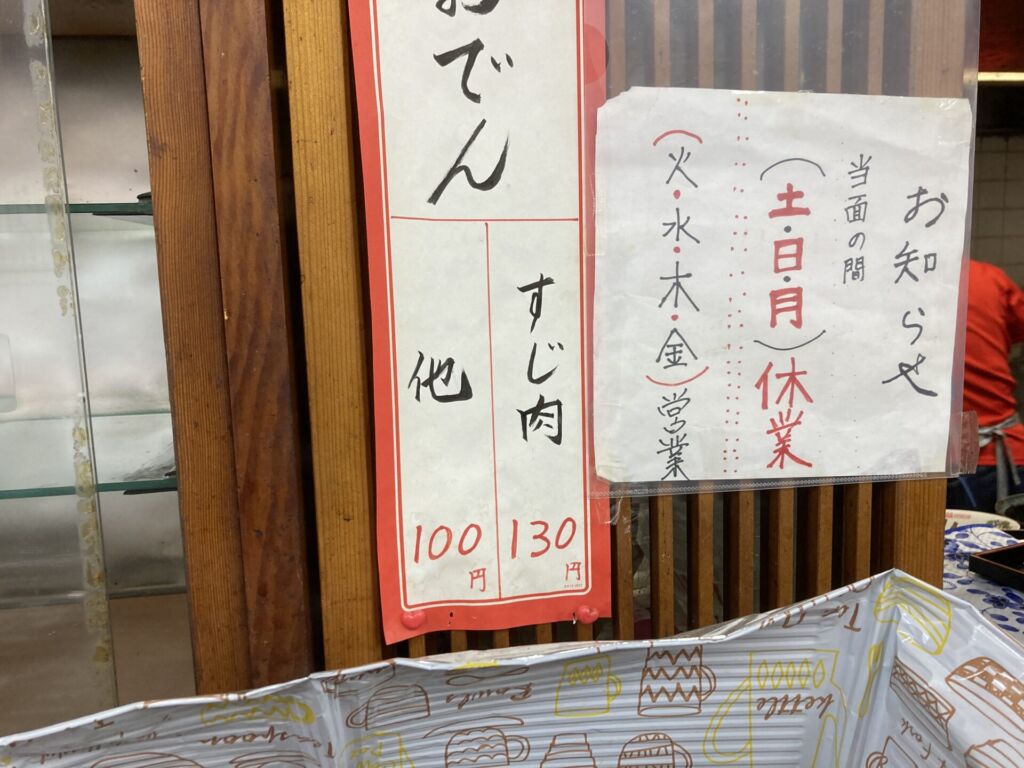 お知らせ
当面の間
(土・日・月)休業
(火・水・木・金)営業
おでん
すじ肉
130円
他
100円
kettle
Bowls
Teaspoon
Fork